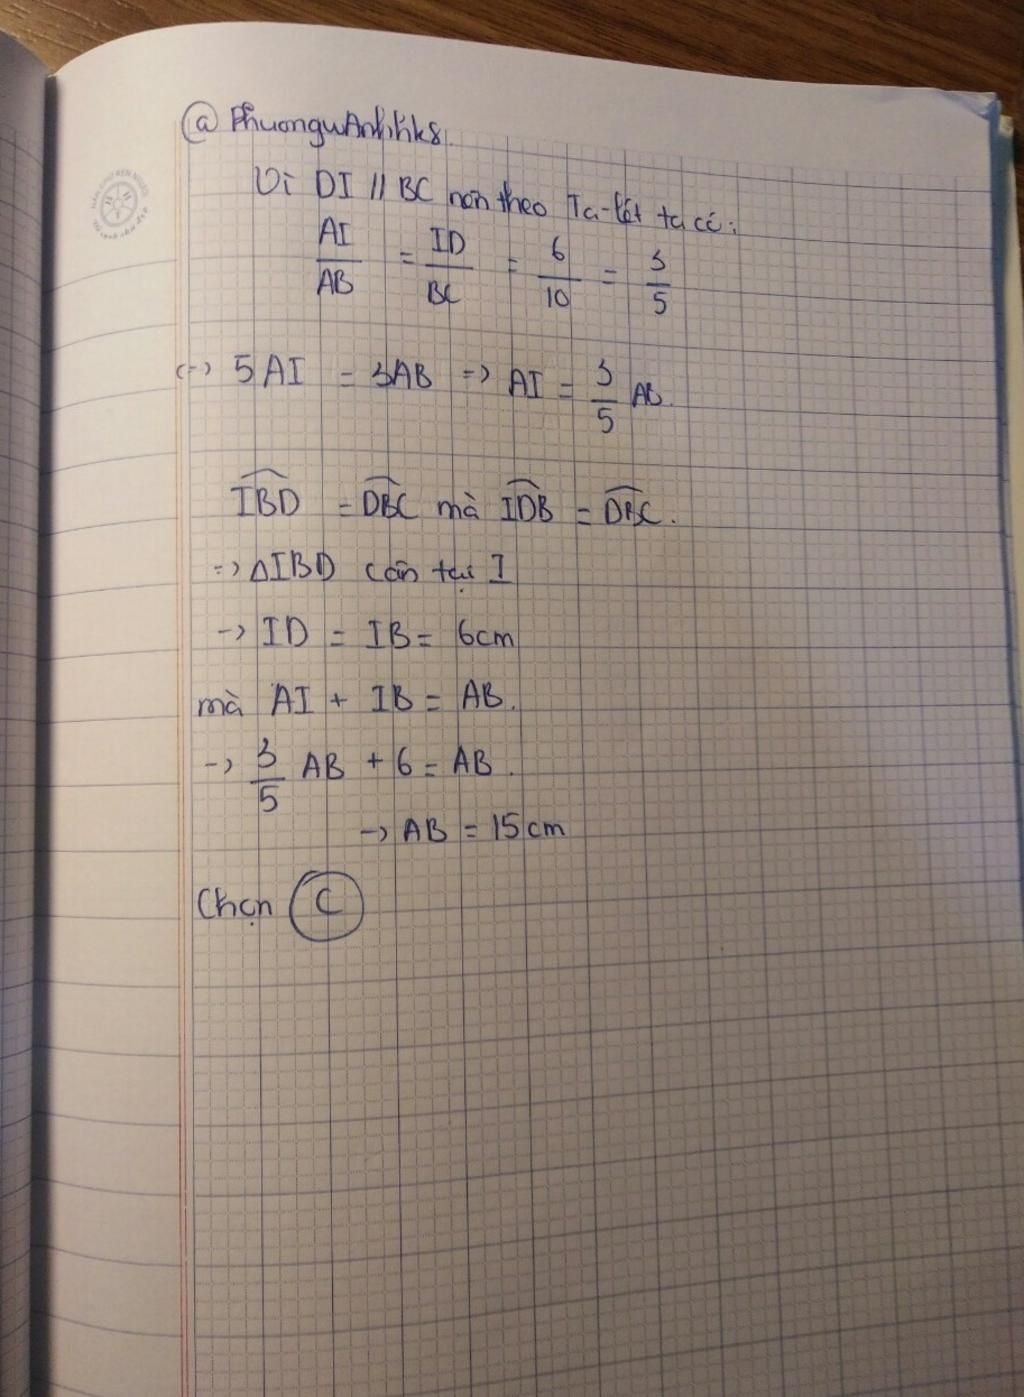 @PhuongwAnhhk8
Vì DI // BC nên theo Ta-lét ta có:
AI/AB = ID/BC = 6/10 = 3/5
<-> 5AI = 3AB => AI = 3/5 AB.
IBD = DBC mà IDB = DBC.
=> ΔIBD cân tại I
-> ID = IB = 6cm
mà AI + IB = AB.
-> 3/5 AB + 6 = AB.
-> AB = 15cm
Chọn C